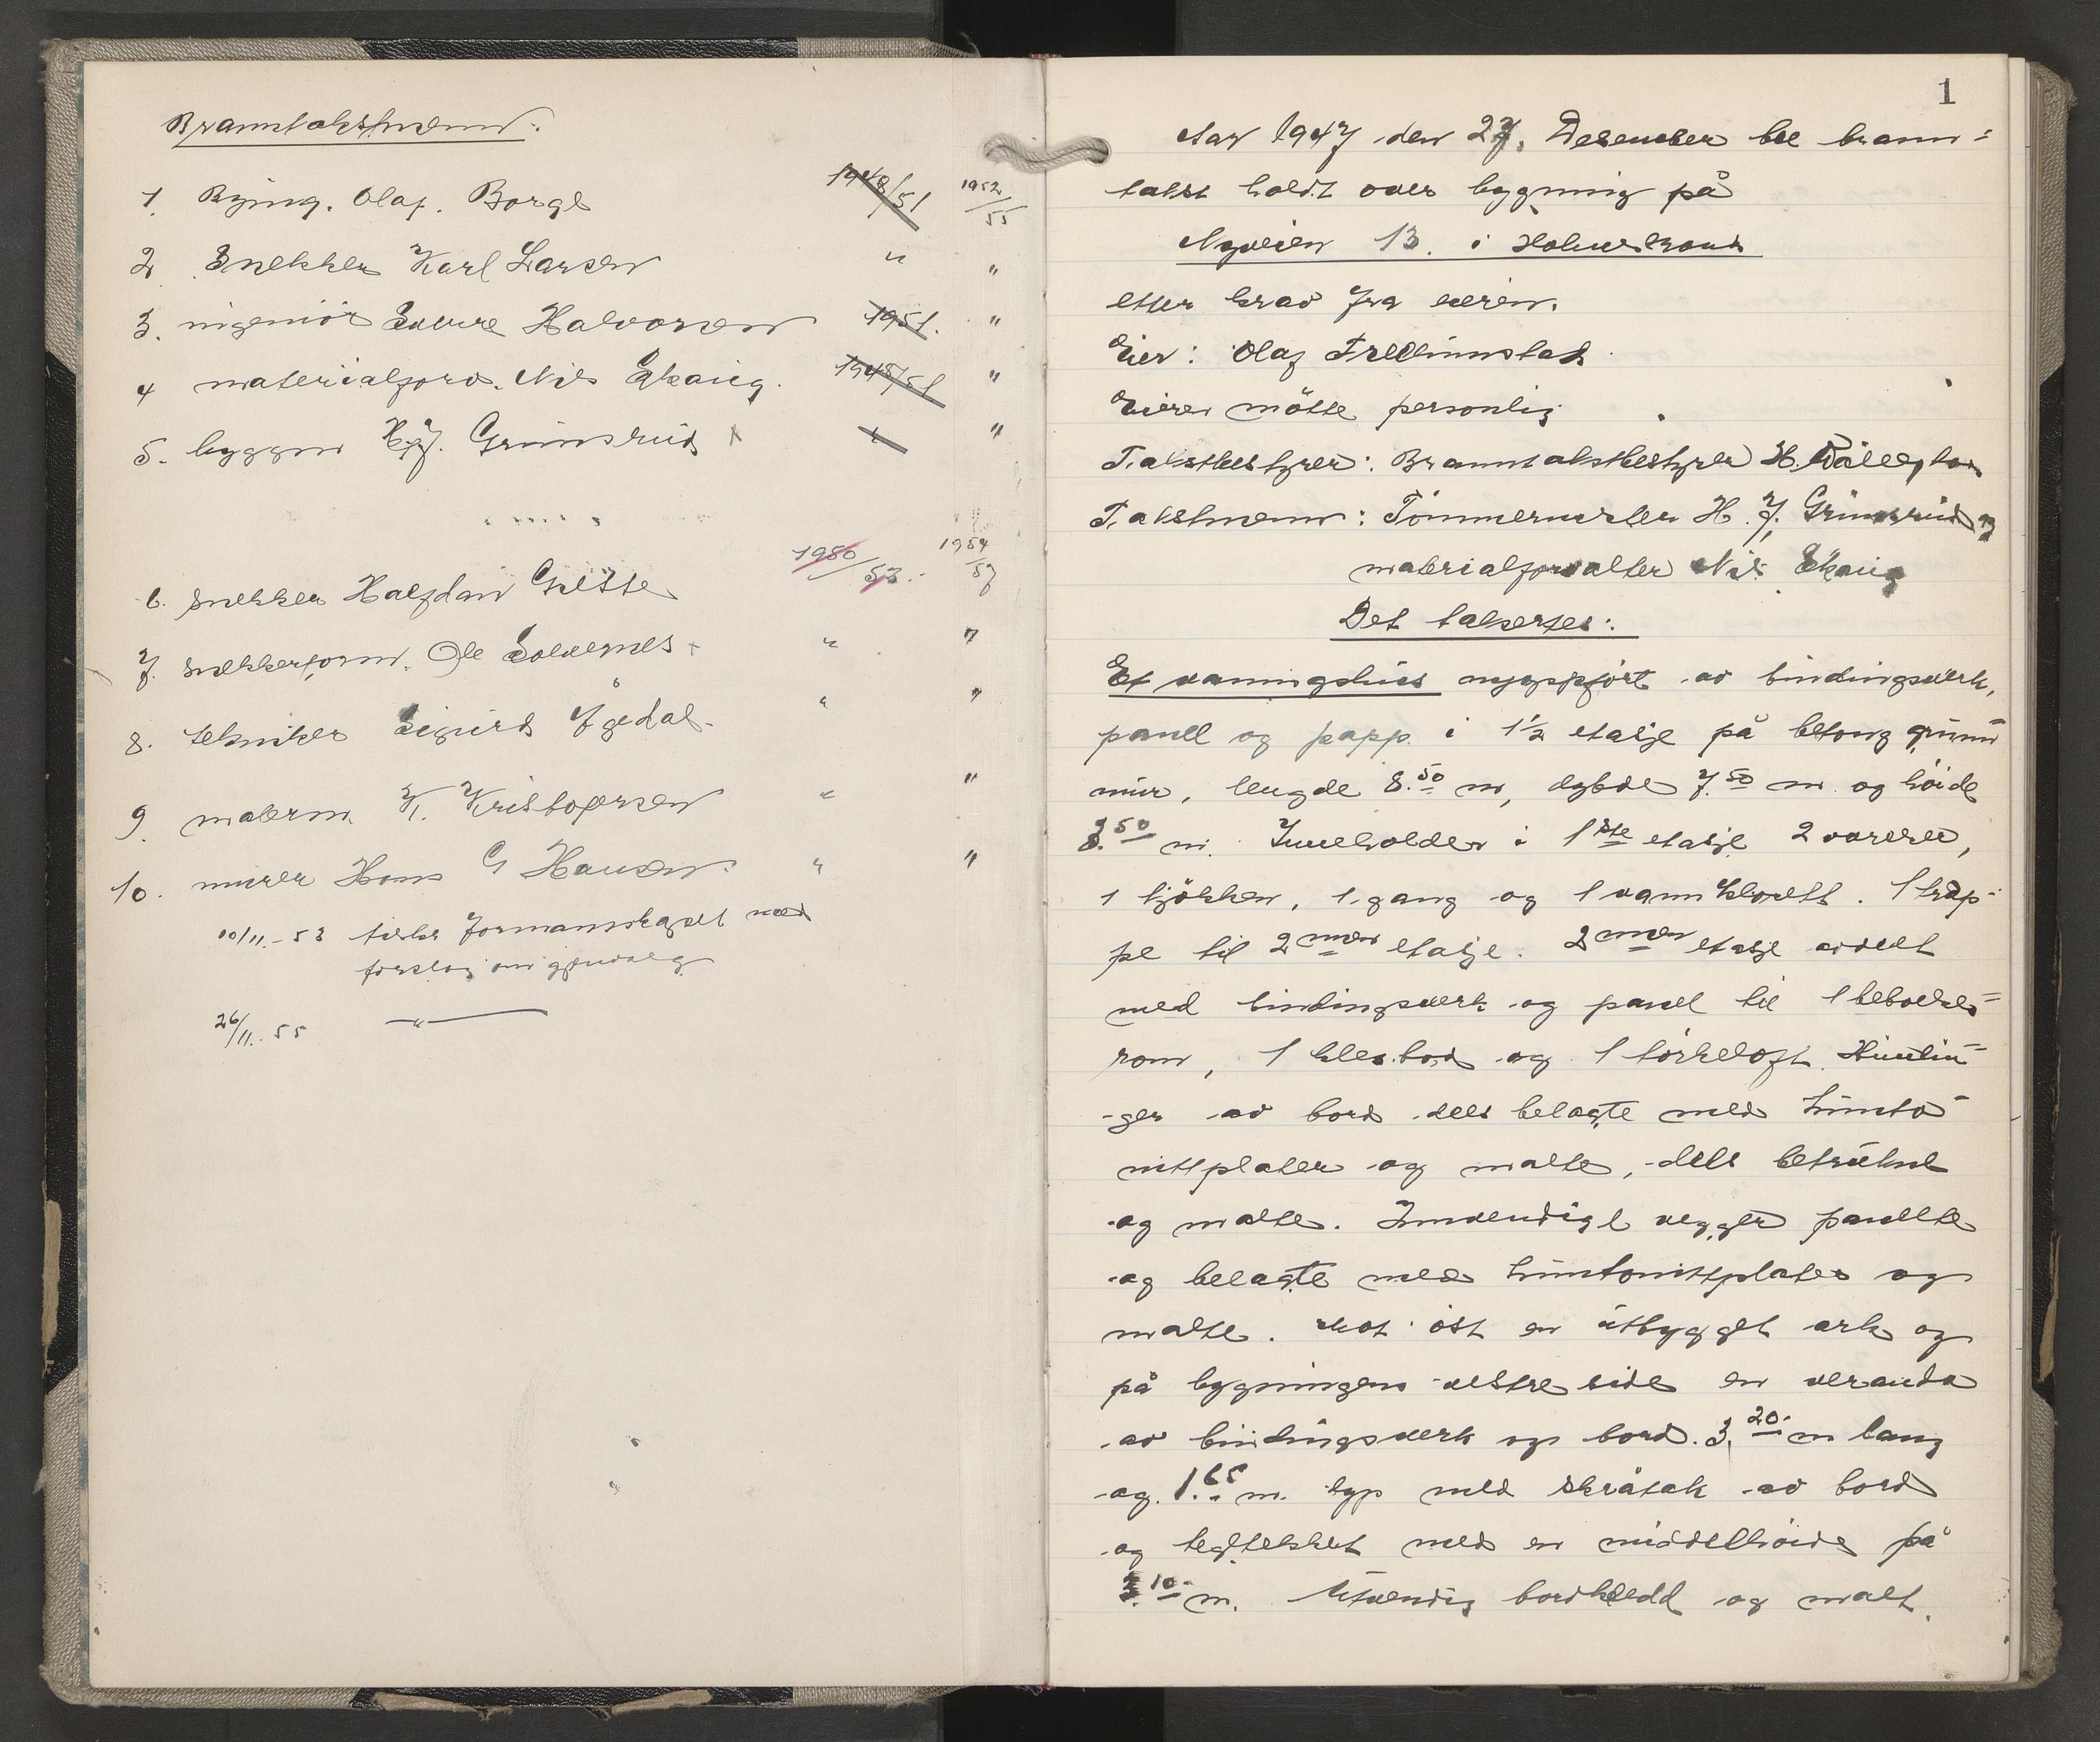 Branntakstmenn:
1. Bying. Olaf. Borge 1948/51 1952/55
2. Snekker Karl Larsen " "
3. ingeniör Sverre Halvorsen 1951. "
4 materialforv. Nils Skaug. 1948/51 "
5. byggm H.J. Grimsrud "
6. snekker Halfdan Grette 1950/53 1954/57
7. snekkerform. Ole Solvernes " "
8. tekniker Sigurd Ågedal " "
9. malerm. K. Kristofersen " "
10. murer Hans G Hansen " "
10/11.-53 tilskr formannskapet med
forslag om gjenvalg
26/11.55 — " —
1
Aar 1947 den 27. Desember ble brann=
takst holdt over bygning på
Nyveien 13. i Holmestrand
etter krav fra eieren.
Eier: Olaf Fredlinnstad
Eieren mötte personlig
Takstbestyrer: Branntakstbestyrer H.
Takstmenn: Tömmermester H. J. Grimsrud og
materialforvalter Nils Skaug
Det takseres:
Et vaaningshus nyoppfört av bindingsverk,
panel og papp i 1½ etasje på betong grunn
mur, lengde 8.50 m, dybde 7.50 m og höide
3.50 m. Inneholder i 1ste etasje 2 værelser,
1 kjökken, 1 gang og 1 vannklosett. 1 trap-
pe til 2nen etasje. 2nen etasje avdelt
med bindingsverk og panel til 1 beboelses=
rom, 1 klesbod og 1 törkeloft. Himlin=
-ger av bord dels belagte med hunto=
nittplater og malte, dels betrukne
og malte. Innvendige vegger panelte
og belagte med huntonittplater og
malte. Mot öst en utbygget ark og
på bygningens vestre side en veranda
av bindingsverk og bord. 3.20 m lang
og 1.65 m. dyp med skråtak av bord
og tegltekket med en middelhöide på
3.10 m. Utvendig bordkledd og malt.